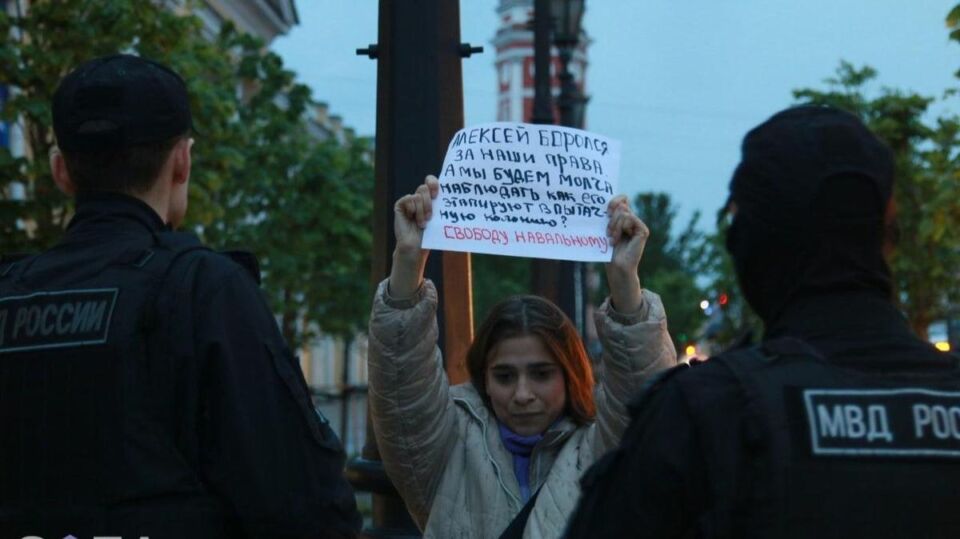 АЛЕКСЕЙ БОРОЛСЯ
ЗА НАШИ ПРАВА
А МЫ БУДЕМ МОЛЧА
НАБЛЮДАТЬ КАК ЕГО
ЭТАПИРУЮТ В ПЫТАЧ-
НУЮ КОЛОНИЮ?
СВОБОДУ НАВАЛЬНОМУ
РОССИИ
МВД РОС